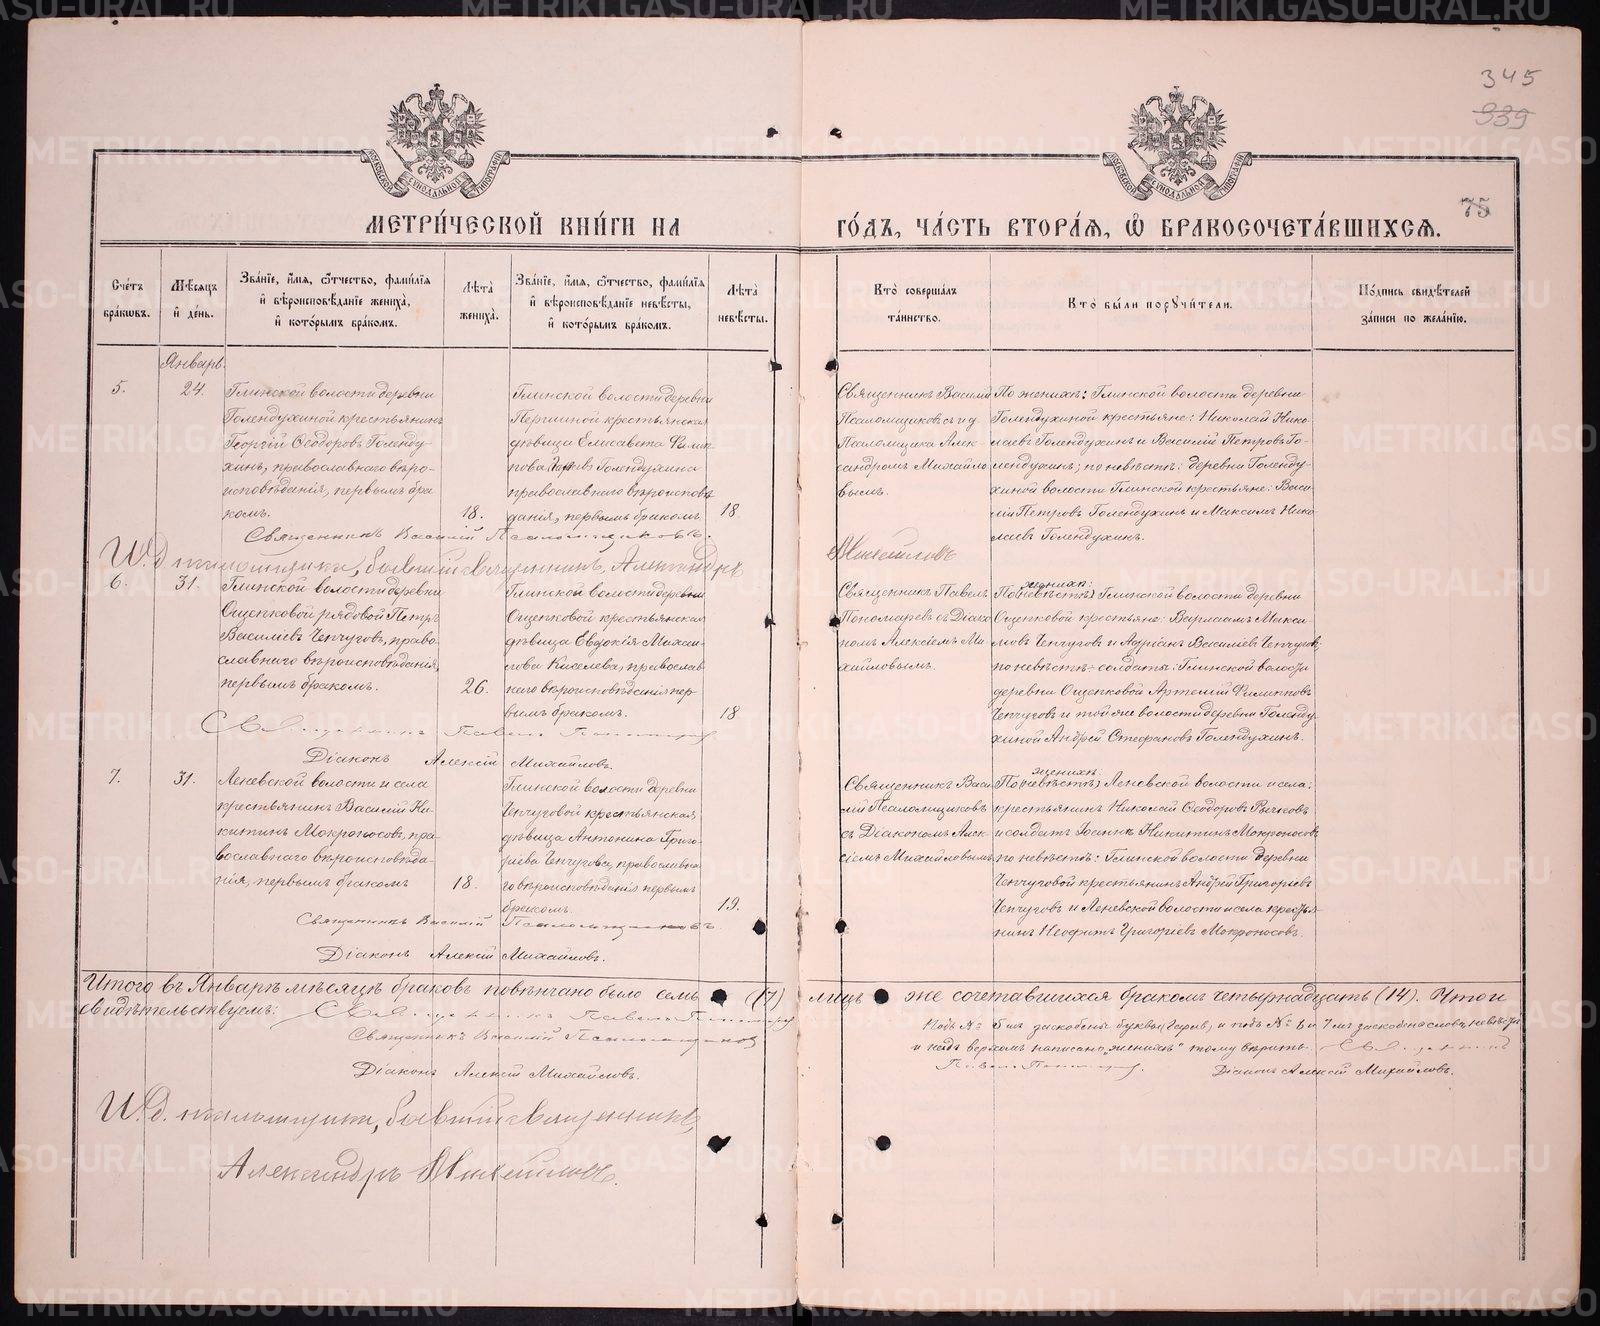 345
939
75
МЕТРИ́ЧЕСКОЙ КНИ́ГИ НА ГО́ДЪ, ЧА́СТЬ ВТОРА́Я, Ѿ БРАКОСОЧЕТА́ВШИХСЯ.
Сче́тъ бра́кωвъ.
Мѣ́сяцъ и҆ де́нь.
Зва́нїе, и҆́мя, ѻ҆́тчество, фами́лїя и҆ вѣроисповѣ́данїе жениха̀, и҆ кото́рымъ бра́комъ.
Лѣ́та жениха̀.
Зва́нїе, и҆́мя, ѻ҆́тчество, фами́лїя и҆ вѣроисповѣ́данїе невѣ́сты, и҆ кото́рымъ бра́комъ.
Лѣ́та невѣ́сты.
Кто̀ соверша́лъ та́инство.
Кто̀ бы́ли порꙋчи́тели.
По́дпись свидѣ́телей за́писи по жела́нїю.
Январь.
5.
24.
Глинской волости деревни
Голендухиной крестьянинъ
Георгій Ѳеодоровъ Голенду-
хинъ, православнаго вѣро-
исповѣданія, первымъ бра
комъ.
18.
Глинской волости деревни
Першиной крестьянская
дѣвица Елисавета Филип
пова Голендухина
православнаго вѣроисповѣ
данія, первымъ бракомъ
18
Священникъ Василій
Псаломщиковъ съ и д
Псаломщика Алек-
сандромъ Михайло
вымъ.
По женихѣ: Глинской волости деревни
Голендухиной крестьяне: Николай Нико-
лаевъ Голендухинъ и Василій Петровъ Го-
лендухинъ; по невѣстѣ: деревни Голенду-
хиной волости Глинской крестьяне: Васи-
лій Петровъ Голендухинъ и Максимъ Нико-
лаевъ Голендухинъ.
Священникъ Василій Псаломщиковъ.
И. д. псаломщика, бывшій священникъ, Александръ Михайловъ
6.
31.
Глинской волости деревни
Ощепковой рядовой Петръ
Василіевъ Чепчуговъ, право-
славнаго вѣроисповѣданія,
первымъ бракомъ.
26.
Глинской волости деревни
Ощепковой крестьянская
дѣвица Евдокія Михаи-
лова Киселева, православ
наго вѣроисповѣданія пер-
вымъ бракомъ.
18
Священникъ Павелъ
Пономаревъ съ Діако
номъ Алексіемъ Ми
хайловымъ.
женихѣ:
По (невѣстѣ) Глинской волости деревни
Ощепковой крестьяне: Варлаамъ Макси
мовъ Чепчуговъ и Адріанъ Василіевъ Чепчуговъ;
по невѣстѣ - солдаты: Глинской волости
деревни Ощепковой Артемій Филипповъ
Чепчуговъ и той же волости деревни Голенду
хиной Андрей Стефановъ Голендухинъ.
Священникъ Павелъ Пономаревъ
Діаконъ Алексій Михайловъ.
7.
31.
Леневской волости и села
крестьянинъ Василій Ни-
китинъ Мокроносовъ пра-
вославнаго вѣроисповѣда-
нія, первымъ бракомъ
18.
Глинской волости деревни
Чепчуговой крестьянская
дѣвица Антонина Григо-
ріева Чепчугова, православна
го вѣроисповѣданія первымъ
бракомъ.
19.
Священникъ Васи
лій Псаломщиковъ
съ Діакономъ Алек-
сіемъ Михайловымъ
женихѣ
По (невѣстѣ) Леневской волости и села:
крестьянинъ Николай Ѳеодоровъ Рычковъ
и солдатъ Іоаннъ Никитинъ Мокроносовъ
по невѣстѣ: Глинской волости деревни
Чепчуговой крестьянинъ Андрей Григоріевъ
Чепчуговъ и Леневской волости и села крестья-
нинъ Неофитъ Григоріевъ Мокроносовъ.
Священникъ Василій Псаломщиковъ
Діаконъ Алексій Михайловъ.
Итого въ Январѣ мѣсяцѣ браковъ повѣнчано было семь (7) лицъ же сочетавшихся бракомъ четырнадцать (14). Итоги
свидѣтельствуемъ: Священникъ Павелъ Пономаревъ
Священникъ Василій Псаломщиковъ
Діаконъ Алексій Михайловъ.
Подъ № 5 мъ заскобены буквы и подъ № 6 и 7 мъ заскобена словъ невѣстѣ
и надъ верхомъ написано „женихѣ“ тому вѣрить. Священникъ
Павелъ Пономаревъ. Діаконъ Алексій Михайловъ.
И. д. псаломщика, бывшій священникъ,
Александръ Михайловъ.
METRIKI.GASO-URAL.RU